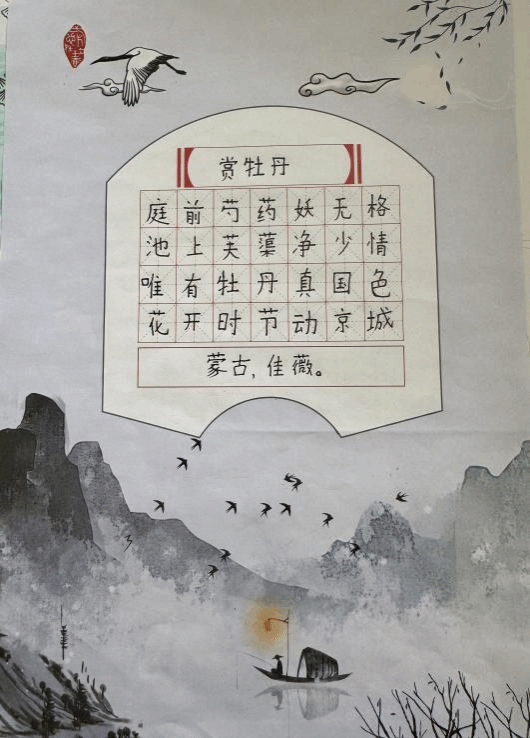 赏牡丹
庭前芍药妖无格
池上芙蕖净少情
唯有牡丹真国色
花开时节动京城
蒙古,佳薇。